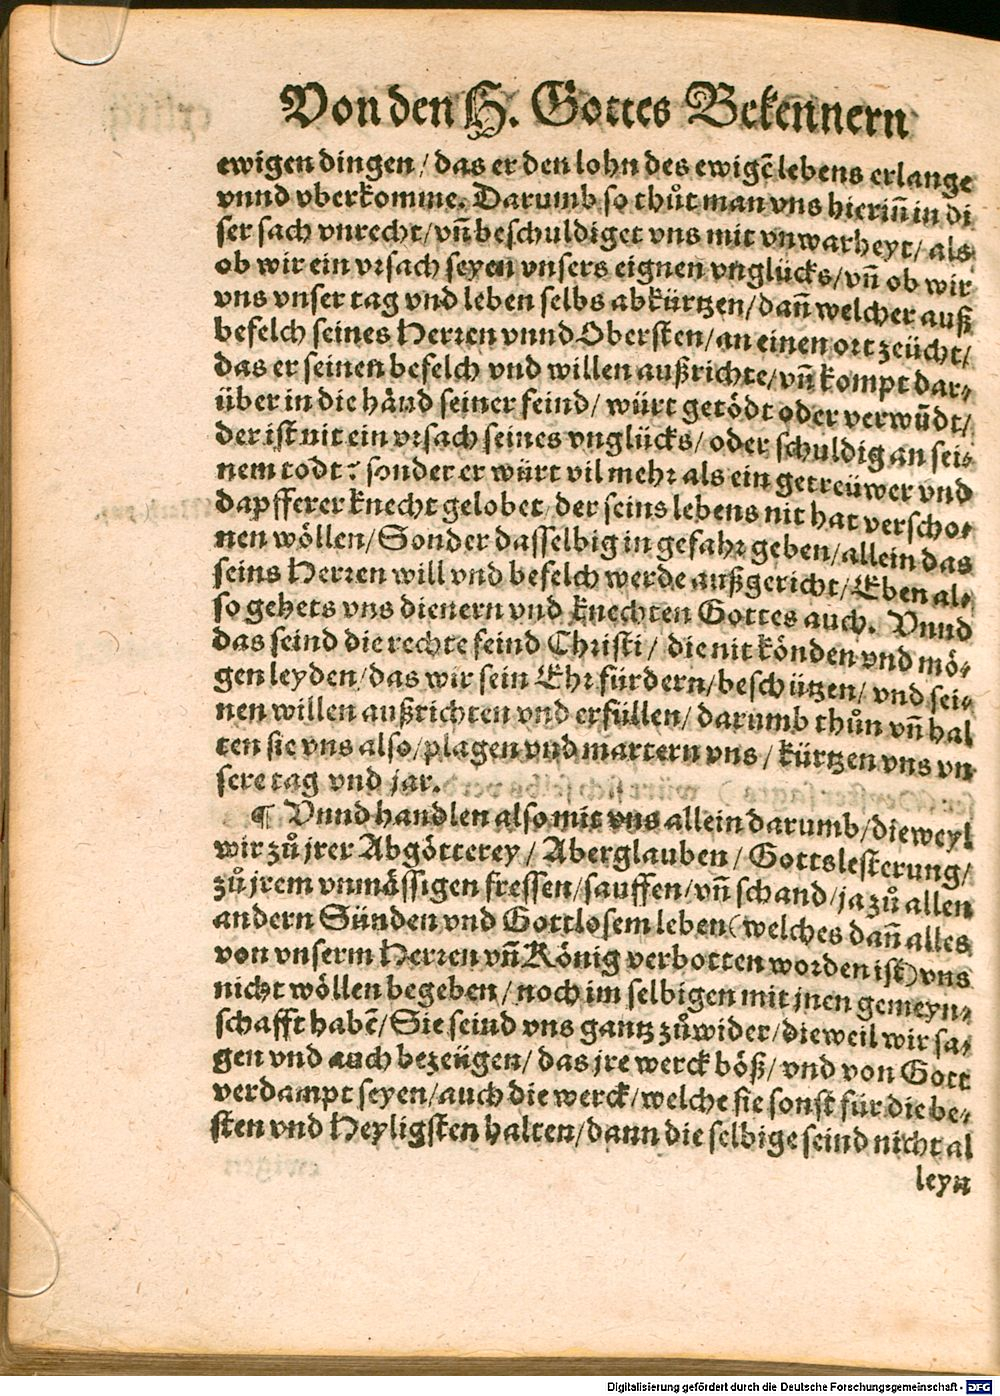 Von den H. Gottes Bekennern
ewigen dingen / das er den lohn des ewigē lebens erlange
vnnd vberkomme. Darumb so thůt man vns hieriñ in di
ser sach vnrecht / vñ beschuldiget vns mit vnwarheyt / als
ob wir ein vrsach seyen vnsers eignen vnglücks / vñ ob wir
vns vnser tag vnd leben selbs abkürtzen / dañ welcher auß
befelch seines Herren vnnd Obersten / an einen ort zeücht /
das er seinen befelch vnd willen außrichte / vñ kompt dar⸗
über in die händ seiner feind / würt getödt oder verwūdt /
der ist nit ein vrsach seines vnglücks / oder schuldig an sei⸗
nem todt: sonder er würt vil mehr als ein getreüwer vnd
dapfferer knecht gelobet, der seins lebens nit hat verscho⸗
nen wöllen / Sonder dasselbig in gefahr geben / allein das
seins Herren will vnd befelch werde außgericht / Eben al⸗
so gehets vns dienern vnd knechten Gottes auch. Vnnd
das seind die rechte feind Christi / die nit könden vnd mö⸗
gen leyden / das wir sein Ehr fürdern / beschützen / vnd sei⸗
nen willen außrichten vnd erfüllen / darumb thůn vñ hal
ten sie vns also / plagen vnd martern vns / kürtzen vns vn
sere tag vnd jar.
¶ Vnnd handlen also mit vns allein darumb / dieweyl
wir zů jrer Abgötterey / Aberglauben / Gottslesterung /
zů jrem vnmässigen fressen / sauffen / vñ schand / ja zů allen
andern Sünden vnd Gottlosem leben (welches dañ alles
von vnserm Herren vñ König verbotten worden ist) vns
nicht wöllen begeben / noch im selbigen mit jnen gemeyn⸗
schafft habē / Sie seind vns gantz zůwider / dieweil wir sa⸗
gen vnd auch bezeügen / das jre werck böß / vnd von Gott
verdampt seyen / auch die werck / welche sie sonst für die be⸗
sten vnd Heyligsten halten / dann die selbige seind nicht al
leyn
Digitalisierung gefördert durch die Deutsche Forschungsgemeinschaft - DFG